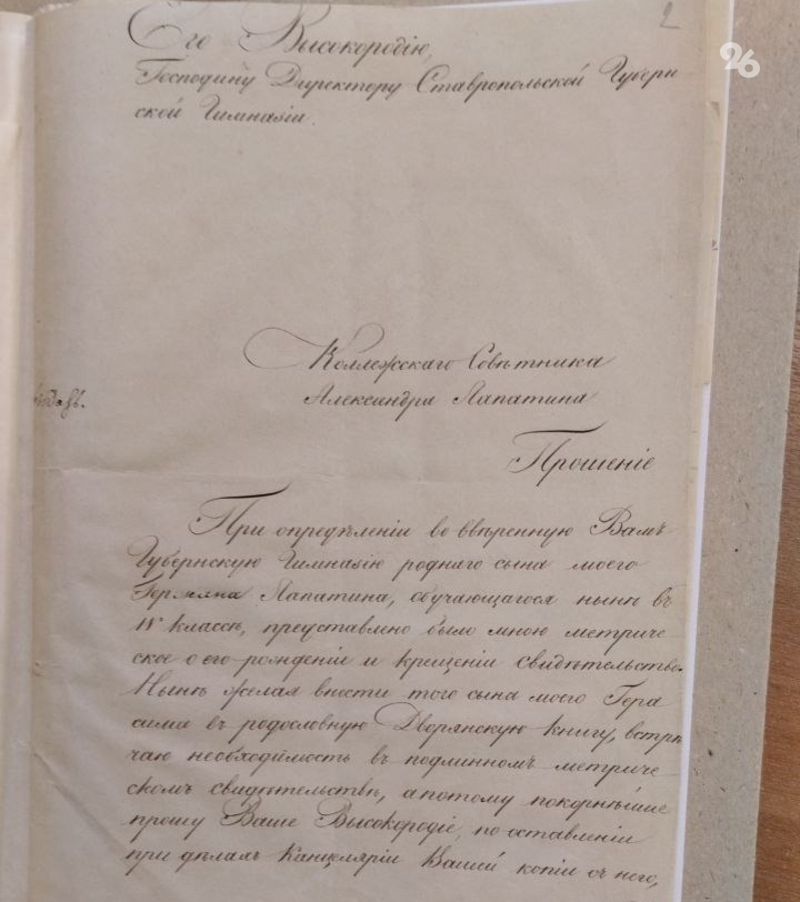 2
26
Его Высокородію,
Господину Директору Ставропольской Губерн-
ской Гимназіи.
Коллежскаго Совѣтника
Александра Лапатина
Прошеніе
При опредѣленіи во ввѣренную Вамъ
Губернскую Гимназію роднаго сына моего
Германа Лапатина, обучающагося нынѣ въ
IV классѣ, представлено было мною метриче-
ское о его рожденіи и крещеніи свидѣтельство.
Нынѣ желая внести того сына моего Гера
сима въ родословную Дворянскую книгу, встрѣ
чаю необходимость въ подлинномъ метриче-
скомъ свидѣтельствѣ, а потому покорнѣйше
прошу Ваше Высокородіе, по оставленіи
при дѣлахъ Канцеляріи Вашей копіи съ него,